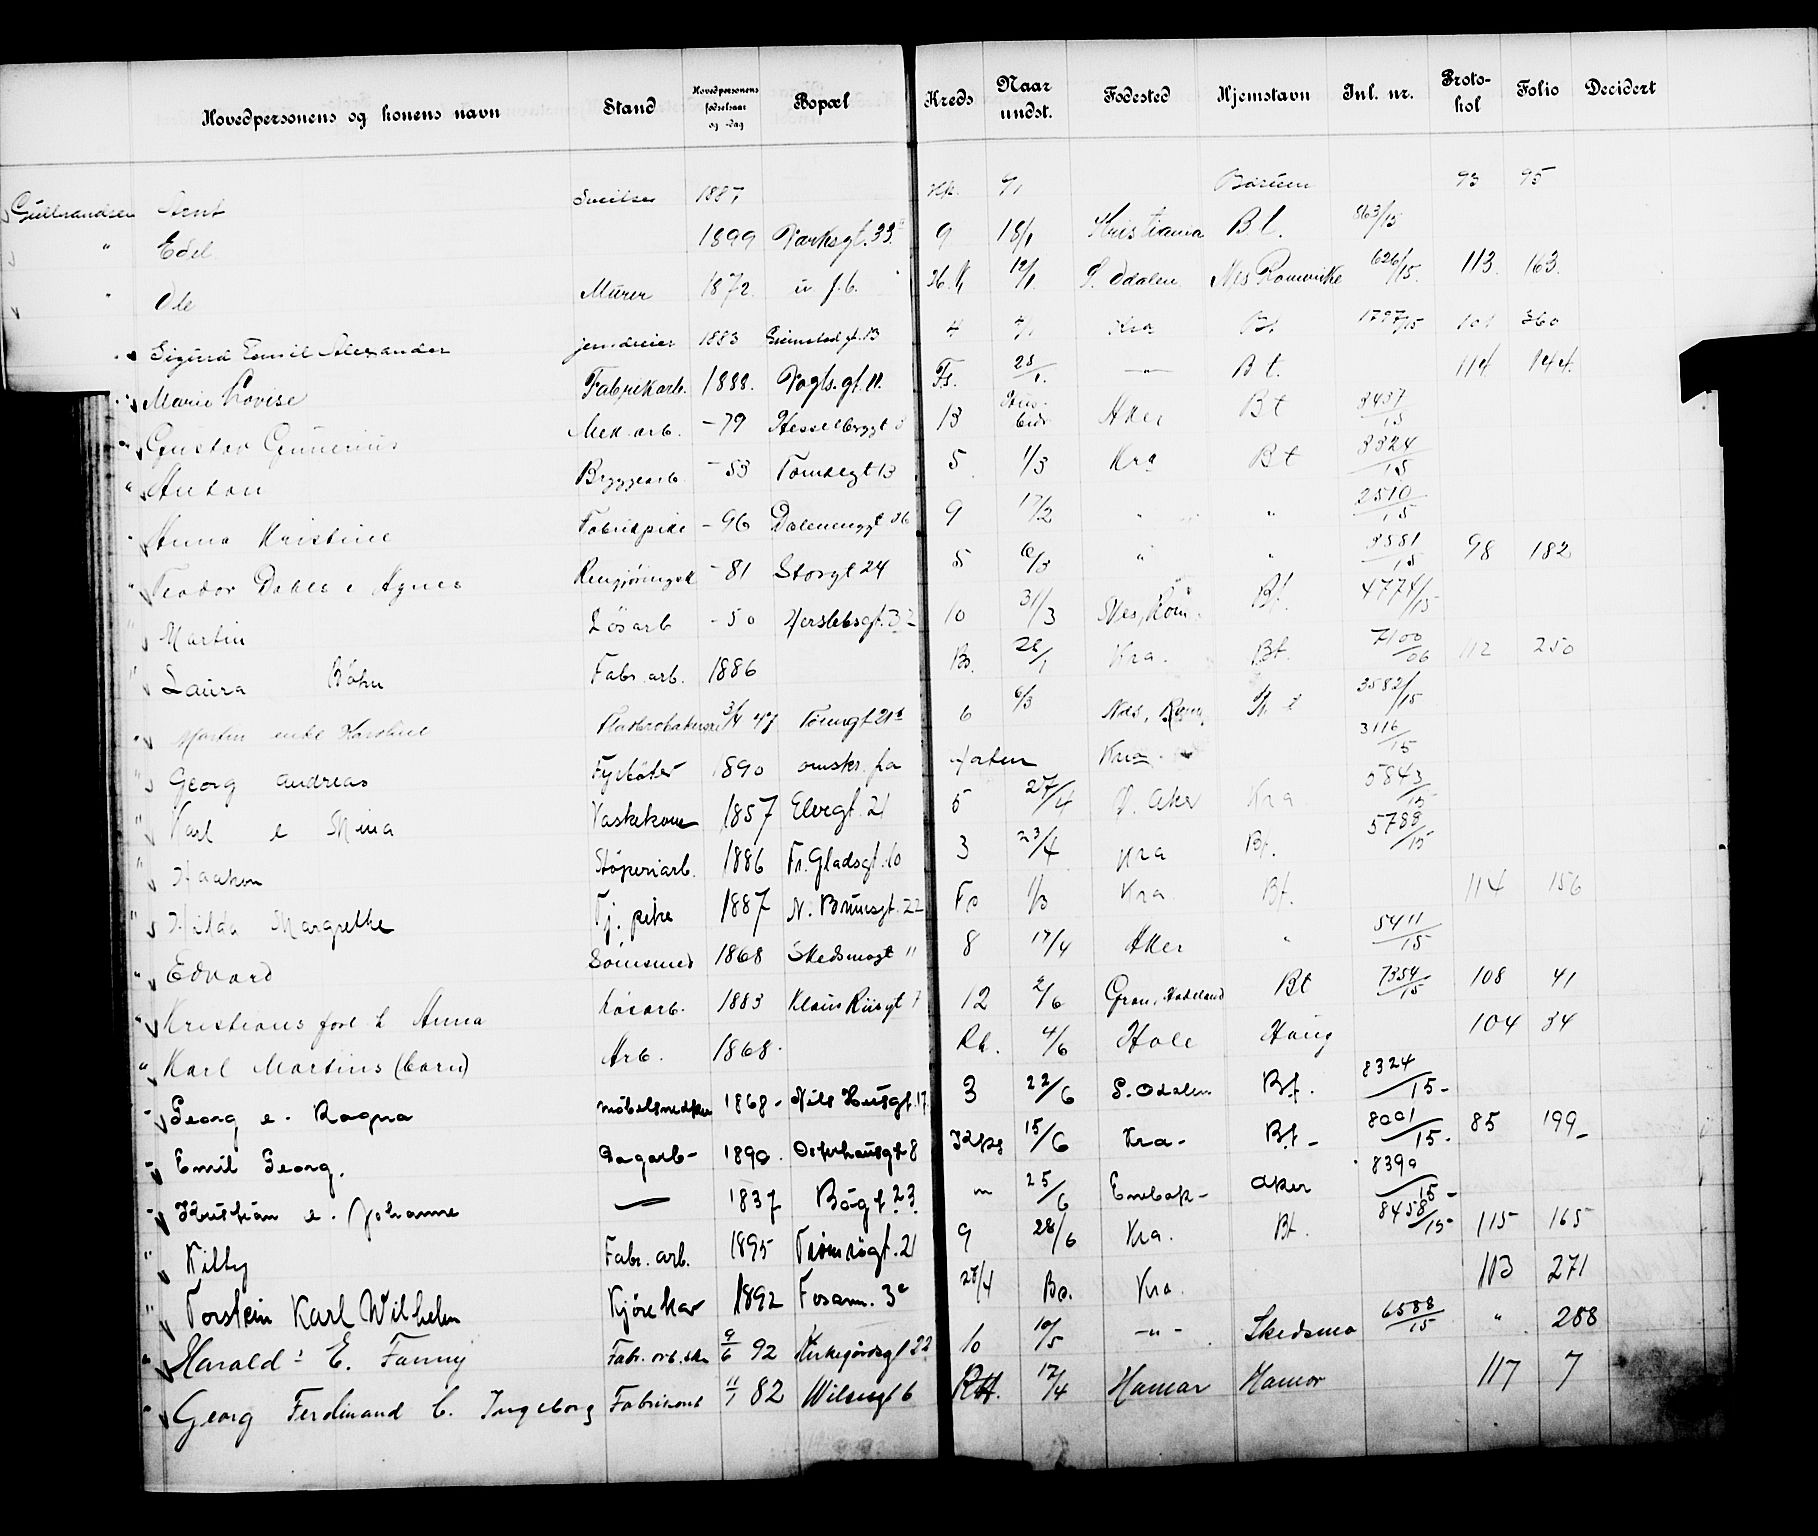 Hovedpersonens og konens navn Stand Hovedpersonens fødselsaar og -dag Bopæl Kreds Naar undst. Fødested Hjemstavn Inl. nr. Protokol Folio Decidert
Gulbrandsen Arnt Sveitser 1887 9/1 Bærum 93 95
" Edel 1899 Parkgt. 33 9 18/1 Kristiania B.t. 863/15
" Ole Murer 1872 u. f. b. 12/1 S. Odalen Nes Romerike 626/15 113 163
Sigurd Emil Alexander 1883 Grimstadgt. 13 4 4/1 Kra Bt 1797/15 101 360
" Marie Lovise Fabrikarb. 1888. Vogtsgt. 11. Fs. 25/1. —"— Bt. 114 144
" Gustav Gunerius Mek. arb. -79 Hesselberggt 8 13 Aker Bt 3437/15
" Anton Bryggearb. -53 Tomtegt 13 5 1/3 Kra Bt 3324/15
" Anna Kristine Fabrikpike -96 Dælenenggt 36 9 17/2 " " 2510/15
" Teodor Agnes Rengjøringsk -81 Storgt 24 5 6/3 " " 3581/15 98 182
" Martin Løsarb -50 Herslebsgt. 32 10 31/3 Nes, Rom. Bt. 4774/15
" Laura Bøhn Fabr. arb. 1886 Bo. 26/1 Kra. Bt. 7100/06 112 250
" Martin enke Karoline 3/4 47 Tøiengt 21b 6 6/3 Næs, Rom. 3582/15
" Georg Andreas Fyrbøter 1890 omskr. fra Horten Kra. 3116/15
" Karl e Mina Vaskekone 1857 Elvegt. 21 5 27/4 V. Aker Kra 5843/15
" Haakon Støperiarb. 1886 Fr. Gladsgt. 10 3 23/4 Kra Bt. 5788/15
" Hilda Margrethe Tj. pike 1887 N. Brunsgt. 22 Fs 1/3 Kra Bt. 114 156
" Edvard 1868 Skedsmogt 11 8 17/4 Aker " 5411/15
" Kristians forl. h Anna Løsarb. 1883 Klaus Riisgt 7 12 2/6 Gran, Hadeland Bt 7354/15 108 41
" Karl Martins (barn) Arb. 1868. Rh. 4/6 Hole Haug 104 34
" Georg e. Ragna Møbelsnedker 1868- Nils Husgt. 17 3 22/6 S. Odalen Bt. 8324/15-
" Emil Georg. Dagarb- 1890. Osterhausgt 8 15/6 Kra- Bt- 8001/15- 85 199-
" Kristian e. Johanne — 1837 Bøgt 23 " 25/6 Enebak- Aker 8390/15-
" Kitty Fabr. arb. 1895 Tromsøgt. 21 9 28/6 Kra. Bt. 8458/15- 115 165
" Torstein Karl Wilhelm Kjørekar 1892 Fosann. 3c 27/4 Bo. Kra. 113 271
" Harald : E. Fanny Fabr. arb.ske 9/6 92 Kirkegårdsgt 22 10 10/5 —"— Skedsmo 6588/15 " 258
" Georg Ferdinand C. Ingeborg Fabrikarb 11/1 82 Wilsesgt 6 RH. 12/4 Hamar Hamar 117 7